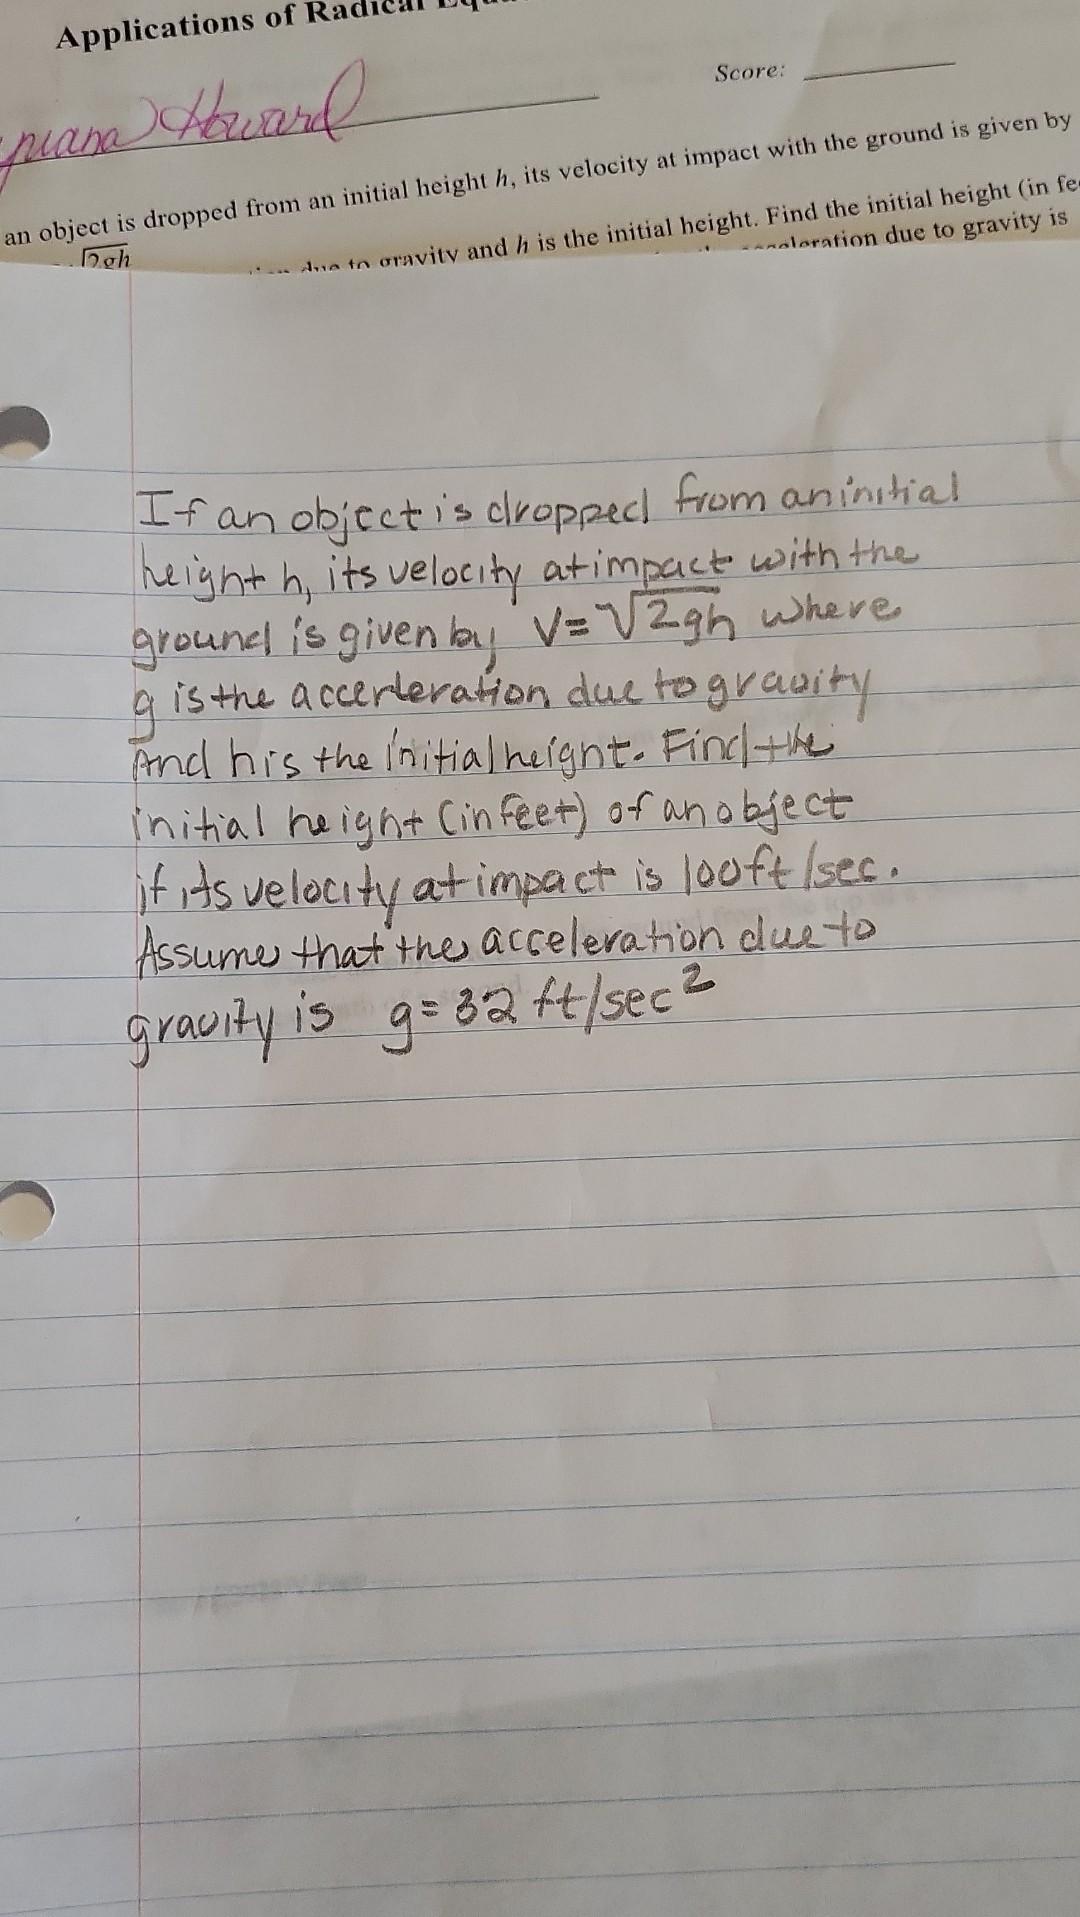 Applications of Radical
Howard
Score:
an object is dropped from an initial height h, its velocity at impact with the ground is given by
√2gh
due to gravity and h is the initial height. Find the initial height (in
acceleration due to gravity is
If an object is dropped from an initial
height h, its velocity at impact with the
ground is given by V=√2gh where
g is the accerleration due to gravity
And h is the initial height. Find the
initial height (in feet) of an object
if its velocity at impact is 100ft/sec.
Assume that the acceleration due to
gravity is g=32 ft/sec²